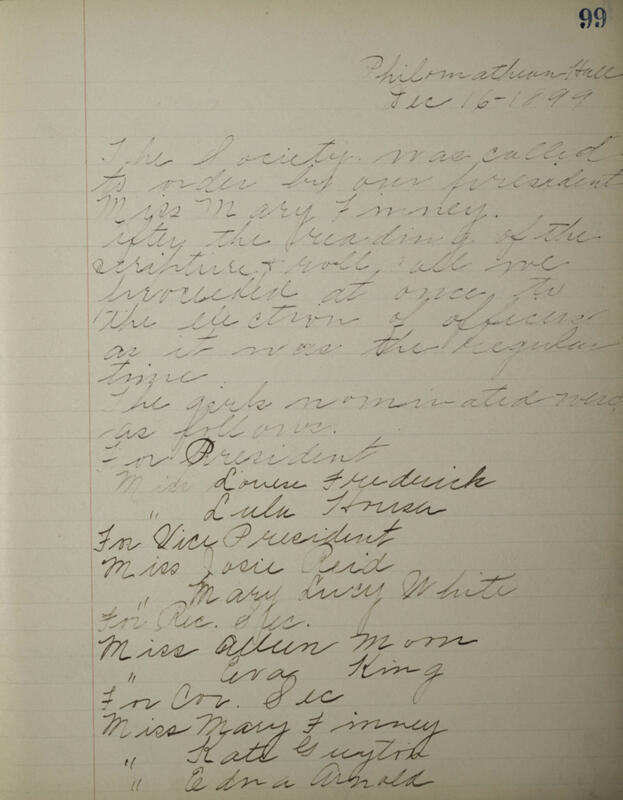 99
Philomathean Hall
Dec 16-1899
The Society was called
to order by our president
Miss Mary Finney.
After the reading of the
scripture & roll call we
proceeded at once to
the election of officers
as it was the regular
time.
The girls nominated were
as follows.
For President
Miss Louise Frederick
" Lula Houser
For Vice President
Miss Josie Reid
" Mary Lucy White
For Rec. Sec.
Miss Aileen Moon
" Eva King
For Cor. Sec
Miss Mary Finney
" Kate Guyton
" Edna Arnold